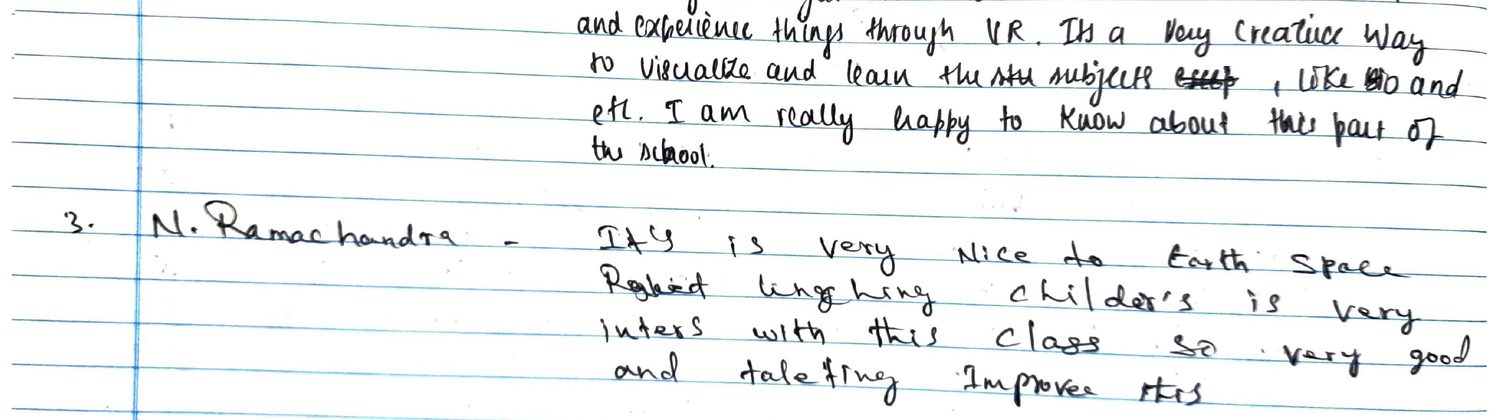 and experience things through VR. Its a very creative way
to visualize and learn the subjects , like Bio and
etc. I am really happy to know about this part of
the school.
3. N. Ramachandra - It's is very Nice to Earth Space
childer's is very
inters with this class so very good
and Improvee this